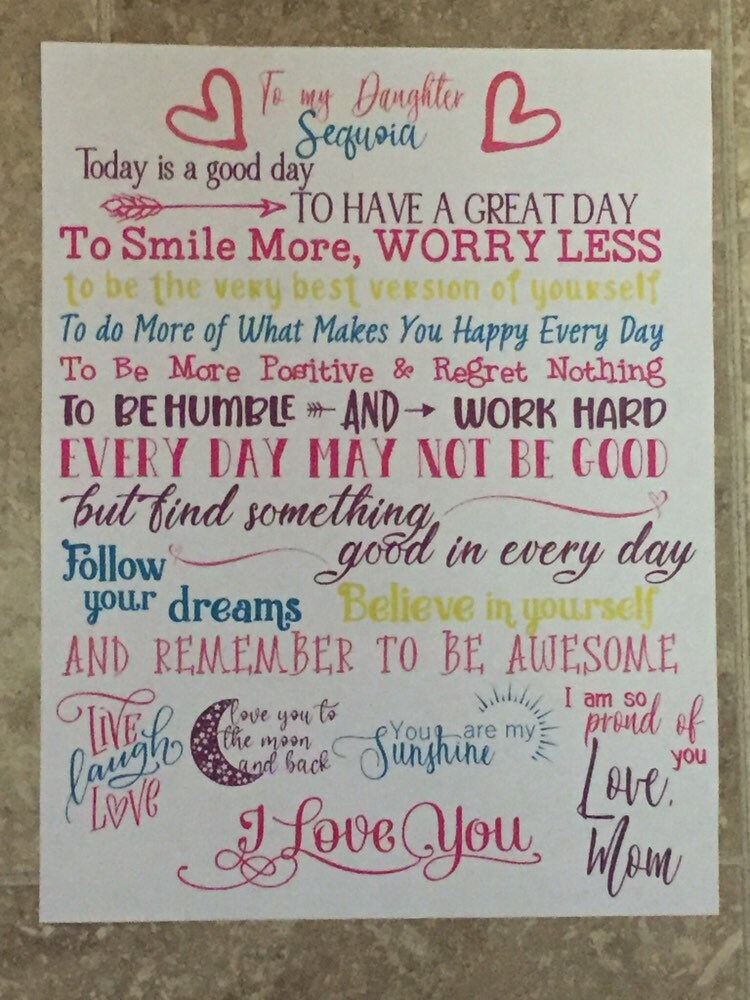 To my Daughter
Sequoia
Today is a good day
TO HAVE A GREAT DAY
To Smile More, WORRY LESS
to be the very best version of yourself
To do More of What Makes You Happy Every Day
To Be More Positive & Regret Nothing
TO BE HUMBLE AND WORK HARD
EVERY DAY MAY NOT BE GOOD
but find something
good in every day
Follow
your dreams
Believe in yourself
AND REMEMBER TO BE AWESOME
LIVE
laugh
LOVE
love you to
the moon
and back
You are my
Sunshine
I am so
proud of
you
Love,
Mom
I Love You